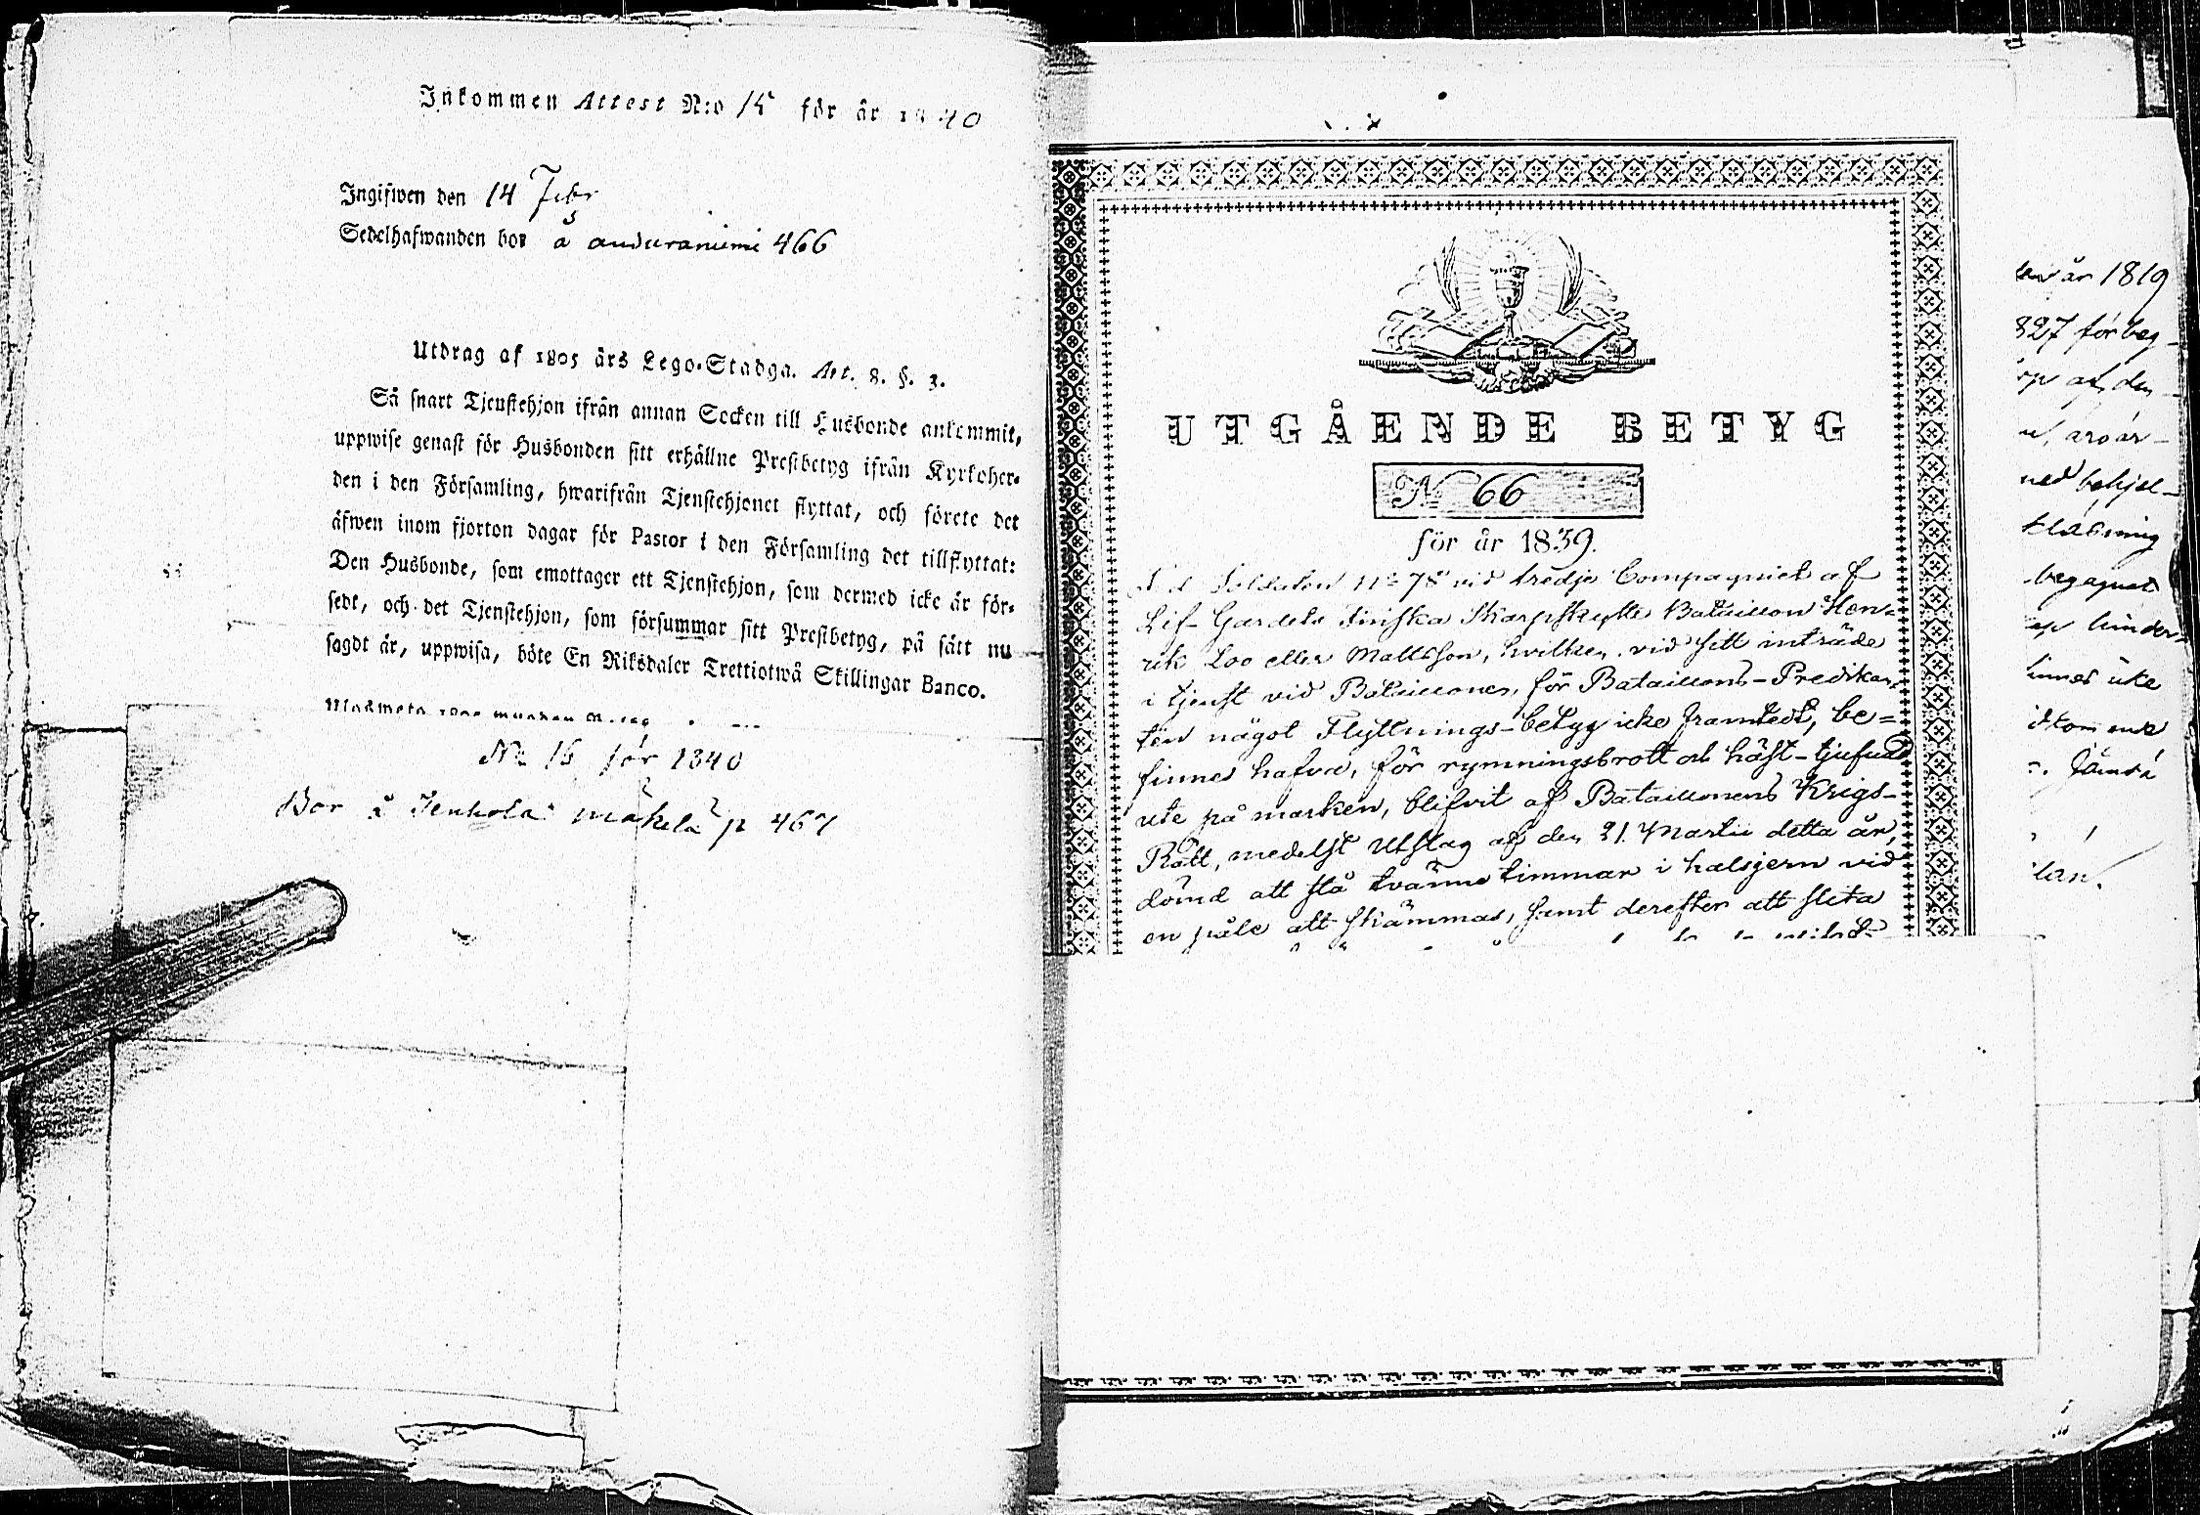 Inkommen Attest N:o 15 för år 1840
Ingifwen den 14 Febr
Sedelhafwanden bor å anduraniemi 466
Utdrag af 1805 års Lego-Stadga. Art. 8. §. 3.
Så snart Tjenstehjon ifrån annan Socken till Husbonde ankommit,
uppwise genast för Husbonden sitt erhållne Prestbetyg ifrån Kyrkoher-
den i den Församling, hwarifrån Tjenstehjonet flyttat, och förete det
äfwen inom fjorton dagar för Pastor i den Församling det tillflyttat:
Den Husbonde, som emottager ett Tjenstehjon, som dermed icke är för-
sedt, och det Tjenstehjon, som försummar sitt Prestbetyg, på sätt nu
sagdt är, uppwisa, böte En Riksdaler Trettiotwå Skillingar Banco.
No 16 för 1840
Bor å mäkelä p 467
UTGÅENDE BETYG
No 66
för år 1839.
Soldaten No 78 vid tredje Compagniet af
Lif-Gardets Finska Skarpskytte Bataillon Hen-
rik Loo eller Mattsson, hvilken vid sitt inträde
i tjenst vid Bataillonen, för Bataillons-Predikan-
ten något Flyttnings-betyg icke framtedt, be=
finnes hafva, för rymningsbrott och häst-tjufnad
ute på marken, blifvit af Bataillonens Krigs-
Rätt, medelst Utslag af den 21 Martii detta år,
dömd att stå tvänne timmar i halsjern vid
en påle att skämmas, samt derefter att slita
år 1819
827 för beg-
af den
behjel-
begagnat
hinder-
Jämsä